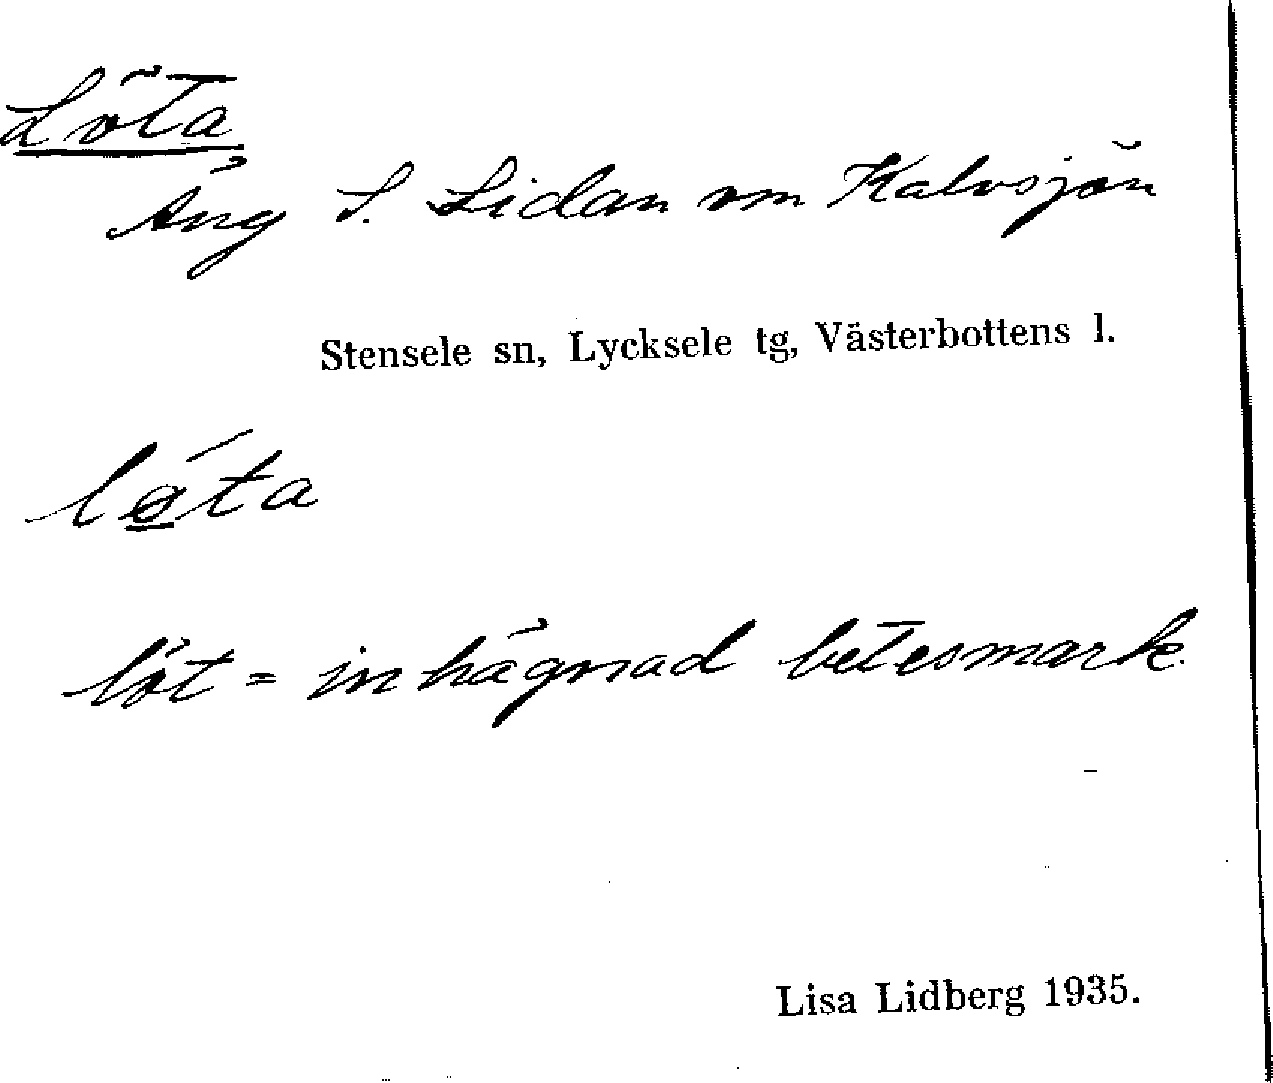 Löta
Äng S. Lidan om Kalvsjön
Stensele sn, Lycksele tg, Västerbottens l.
lǿ̱ta
löt = inhägnad betesmark.
Lisa Lidberg 1935.